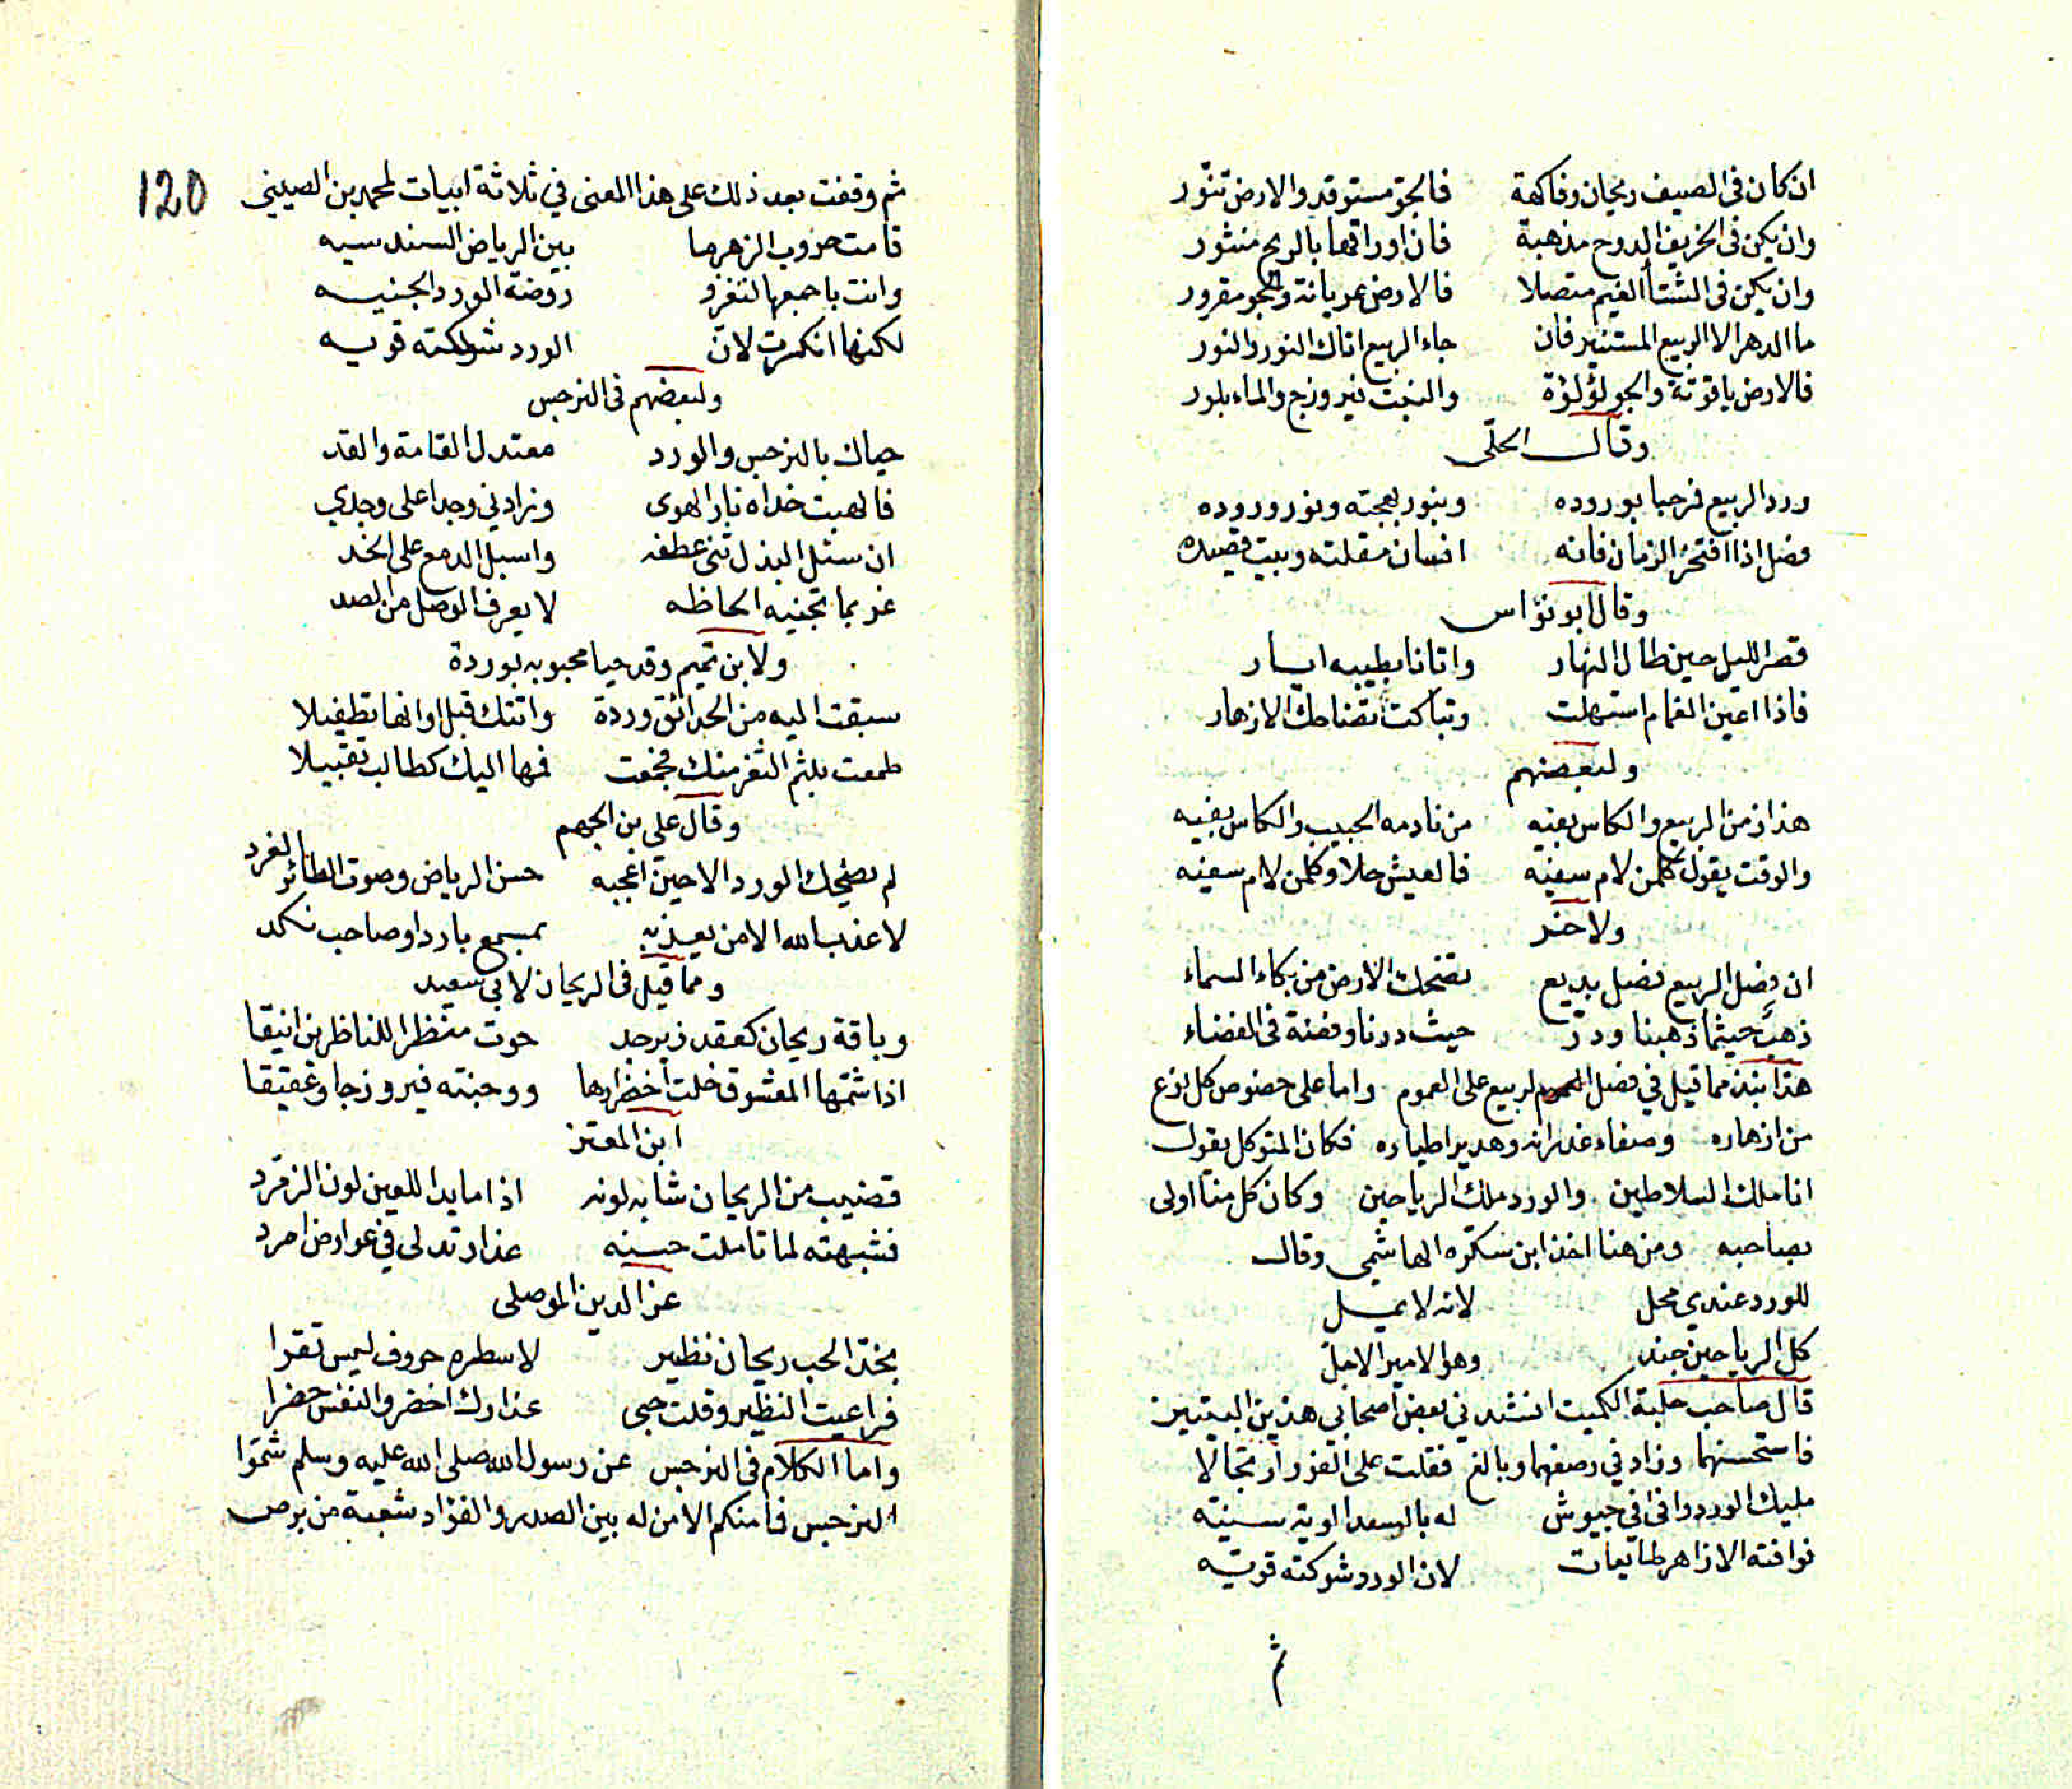 ان كان في الصيف ريحان وفاكهة فالجو مستوقد والارض تنّور
وان يكن في الخريف الدوح مذهبة فان اوراقها بالريح منثور
وان يكن في الشتأ الغيم متصلا فالارض عريانة والجو مقرور
ما الدهر الا الربيع المستنير فان جاء الربيع اتاك النور والنور
فالارض ياقوتة والجو لؤلؤة والنبت فيروزج والماء بلور
وقال الحلّى
ورد الربيع فمرحبا بوروده وبنور بهجته ونور وروده
فصل اذا افتخر الزمان فانه انسان مقلته وبيت قصيده
وقال ابو نؤاس
قصر الليل حين طال النهار واتانا بطيبه ايار
فاذا اعين الغمام استهلت وتباكت تضاحك الازهار
ولبعضهم
هذا زمن الربيع والكاس بفيه من نادمه الحبيب والكاس بفيه
والوقت يقول كلمن لام سفيه فالعيش حلا وكلمن لام سفيه
ولاخر
ان فصل الربيع فصل بديع تضحك الارض من بكاء السماء
ذهب حيثما ذهبنا ودرّ حيث درنا وفضة في الفضاء
هذا نبذ مما قيل في فضل الربيع على العموم واما على خصوص كل نوع
من ازهاره وصفاء غدرانه وهدير اطياره فكان المتوكل يقول
انا ملك السلاطين والورد ملك الرياحين وكان كل منا اولى
بصاحبه ومن هنا اخذ ابن سكّره الهاشمي وقال
للورد عندي محل لانه لا يمل
كل الرياحين جند وهو الامير الاجلّ
قال صاحب حلبة الكميت انشدني بعض اصحابي هذين البيتين
فاستحسنهما وزاد في وصفهما وبالغ فقلت على الفور ارتجالا
مليك الورد وافى في جيوش له بالسعد الوية سنيّه
فوافته الازاهر طايعات لان الورد شوكته قويّه
ثم
120
ثم وقفت بعد ذلك على هذا المعنى في ثلاثة ابيات لمحمد بن الصيبني
قامت حروب الزهر ما بين الرياض السندسيه
واتت باجمعها لتغزو روضة الورد الجنيه
لكنها انكسرت لان الورد شوكته قويه
ولبعضهم في النرجس
حياك بالنرجس والورد معتدل القامة والقد
فالهبت خداه نار الهوى وزادني وجدا على وجدي
ان سئل البذل ثنى عطفه واسبل الدمع على الخد
غر بما تجنيه الحاظه لا يعرف الوصل من الصد
ولابن تميم وقد حيا محبوبه بوردة
سبقت اليه من الحدائق وردة واتتك قبل اوانها تطفيلا
طمعت بلثم الثغر منك فجمعت فمها اليك كطالب تقبيلا
وقال على بن الجهم
لم يضحك الورد الا حين اعجبه حسن الرياض وصوت الطائر الغرد
لا عذب الله الا من يعذبه بمسمع بارد او صاحب نكد
ومما قيل في الريحان لابي سعيد
وباقة ريحان كعقد زبرجد حوت منظرا للناظرين انيقا
اذا شمّها المعشوق خلت اخضرارها ووجنته فيروزجا وعقيقا
ابن المعتز
قضيب من الريحان شابه لونه اذا ما بدا للعين لون الزمرّد
فشبهته لما تاملت حسنه عذار تدلى في عوارض امرد
عز الدين الموصلى
بخدّ الحب ريحان نظير لاسطره حروف ليس تقرا
فراعيت النظير وقلت حبى عذارك اخضر والنفس خضرا
واما الكلام في النرجس عن رسول الله صلى الله عليه وسلم شمّوا
النرجس فما منكم الا من له بين الصدر والفؤاد شعبة من برص